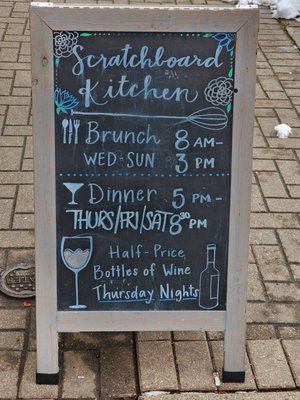 Scratchboard
Kitchen
Brunch 8 AM-
WED-SUN 3 PM
Dinner 5 PM-
THURS/FRI/SAT 8³⁰ PM
Half-Price
Bottles of Wine
Thursday Nights